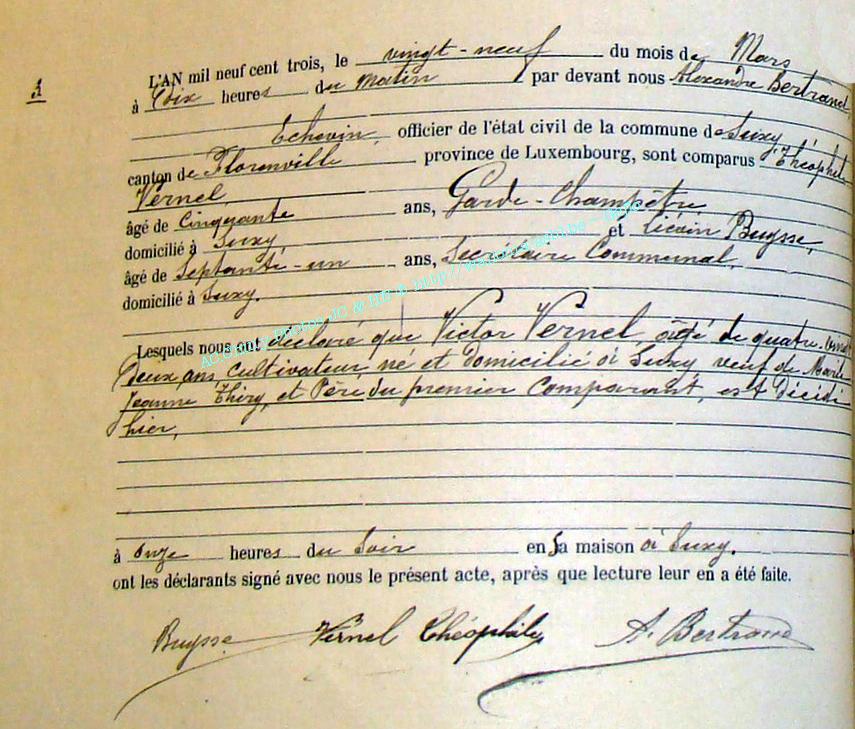 L'AN mil neuf cent trois, le vingt-neuf du mois de Mars
à Dix heures du Matin par devant nous Alexandre Bertrand,
Echevin, officier de l'état civil de la commune de Suxy,
canton de Florenville province de Luxembourg, sont comparus Théophile
Vernel,
âgé de Cinquante ans, Garde-Champêtre
domicilié à Suxy, et Buysse,
âgé de Septante-un ans, Secrétaire Communal,
domicilié à Suxy.
Lesquels nous ont déclaré que Victor Vernel, âgé de quatre-vingt
Deux ans, cultivateur, né et domicilié à Suxy, veuf de Marie
Jeanne Thiry, et Père du premier Comparant, est Décédé
hier,
à onze heures du Soir en sa maison à Suxy.
ont les déclarants signé avec nous le présent acte, après que lecture leur en a été faite.
Buysse Vernel Théophile A. Bertrand